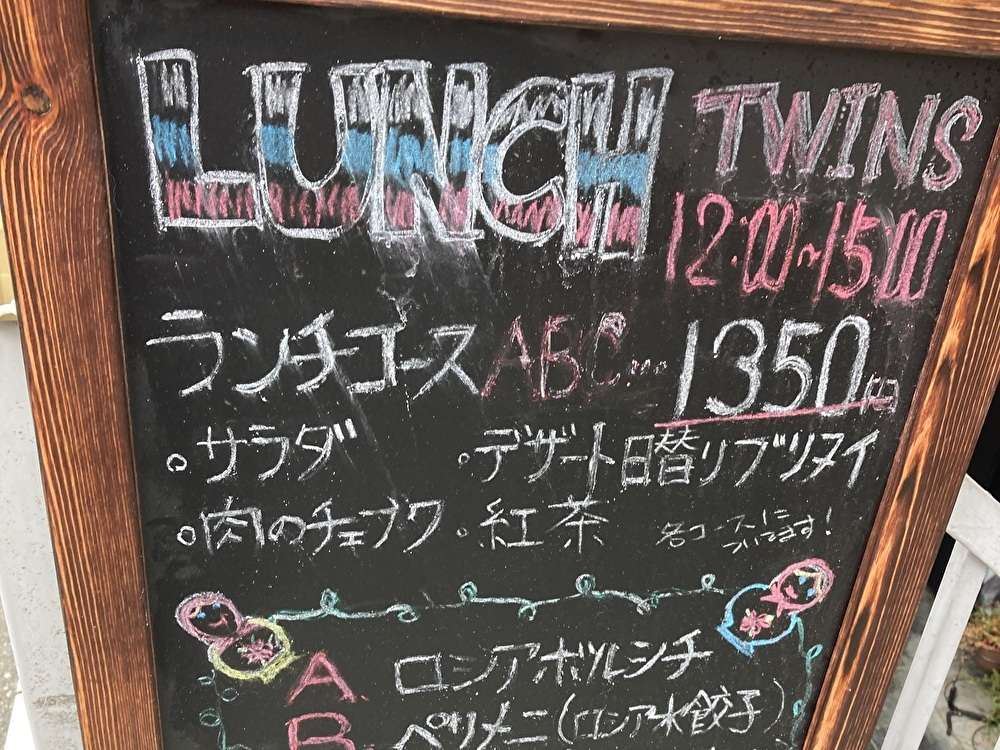 LUNCH TWINS
12:00~15:00
ランチコース ABC... 1350円
・サラダ ・デザート日替りブリヌイ
・肉のチェブク ・紅茶 各コースに
ついてます!
A. ロシアボルシチ
B. ペリメニ(ロシア水餃子)